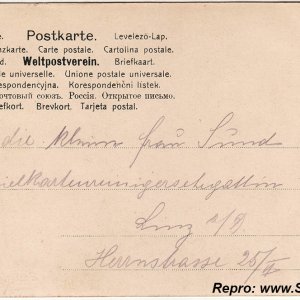 e. Postkarte. Levelező-Lap.
nzkarte. Carte postale. Cartolina postale.
d. Weltpostverein. Briefkaart.
le universelle. Unione postale universale.
espondencyjna. Korespondenční listek.
Почтовый союзъ. Россія. Открытое письмо.
efkort. Brevkort. Tarjeta postal.
die kleine Frau Sünd
Linz a/D
Herrnstrasse 25/II
Repro: www.S